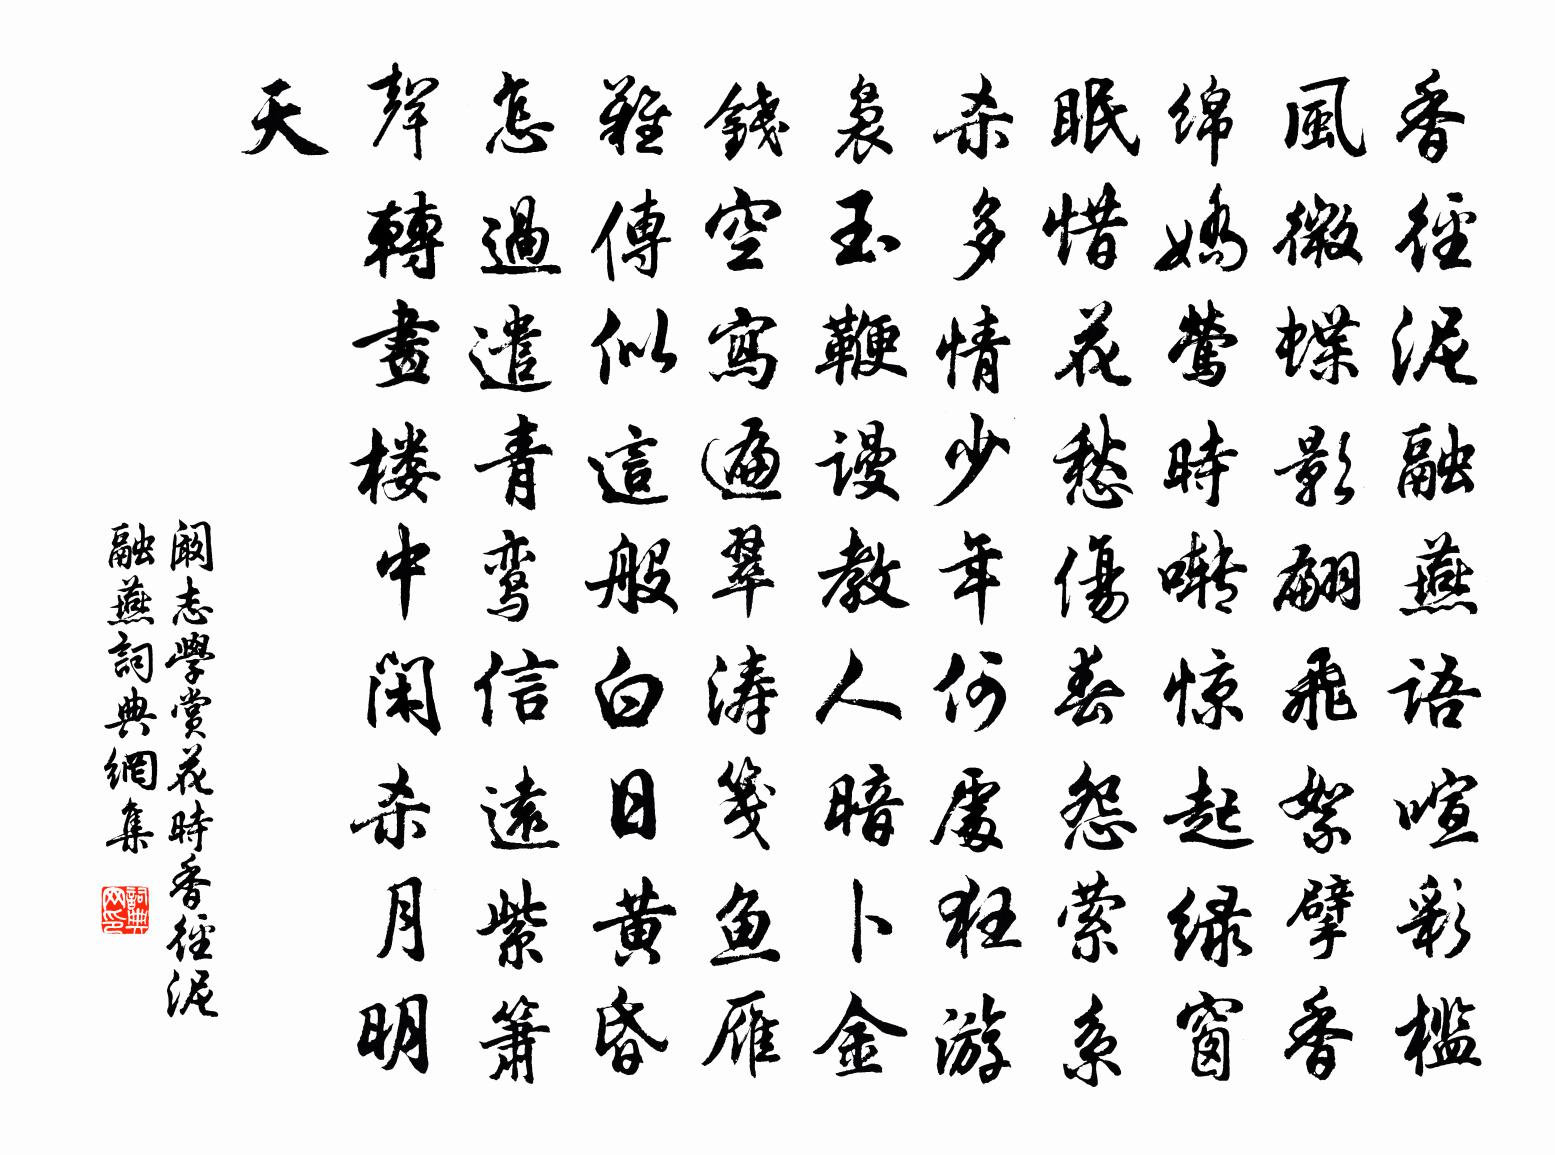 香徑泥融燕語喧彩檻
風微蝶影翩飛絮擘香
绵嬌鶯時囀惊起緑窗
眠惜花愁傷春怨萦系
杀多情少年何處狂游
裊玉鞭謾教人暗卜金
錢空寫遍翠涛箋鱼雁
難傳似這般白日黄昏
怎過遣青鸾信遠紫簫
聲轉畫楼中閑杀月明
天
阚志學賞花時香徑泥
融燕詞典網集
詞典网